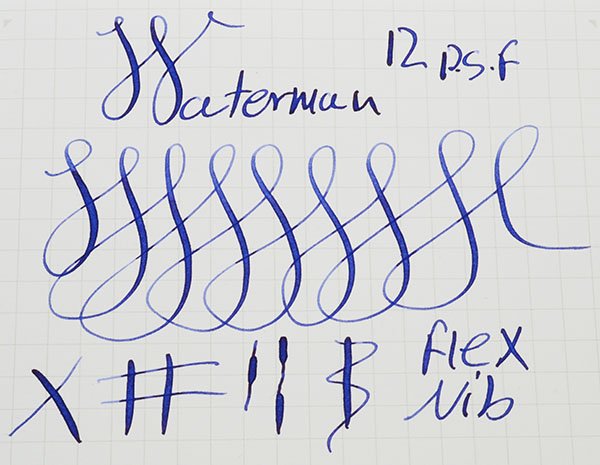 Waterman 12 P.S.F
X # " $ Flex
Nib